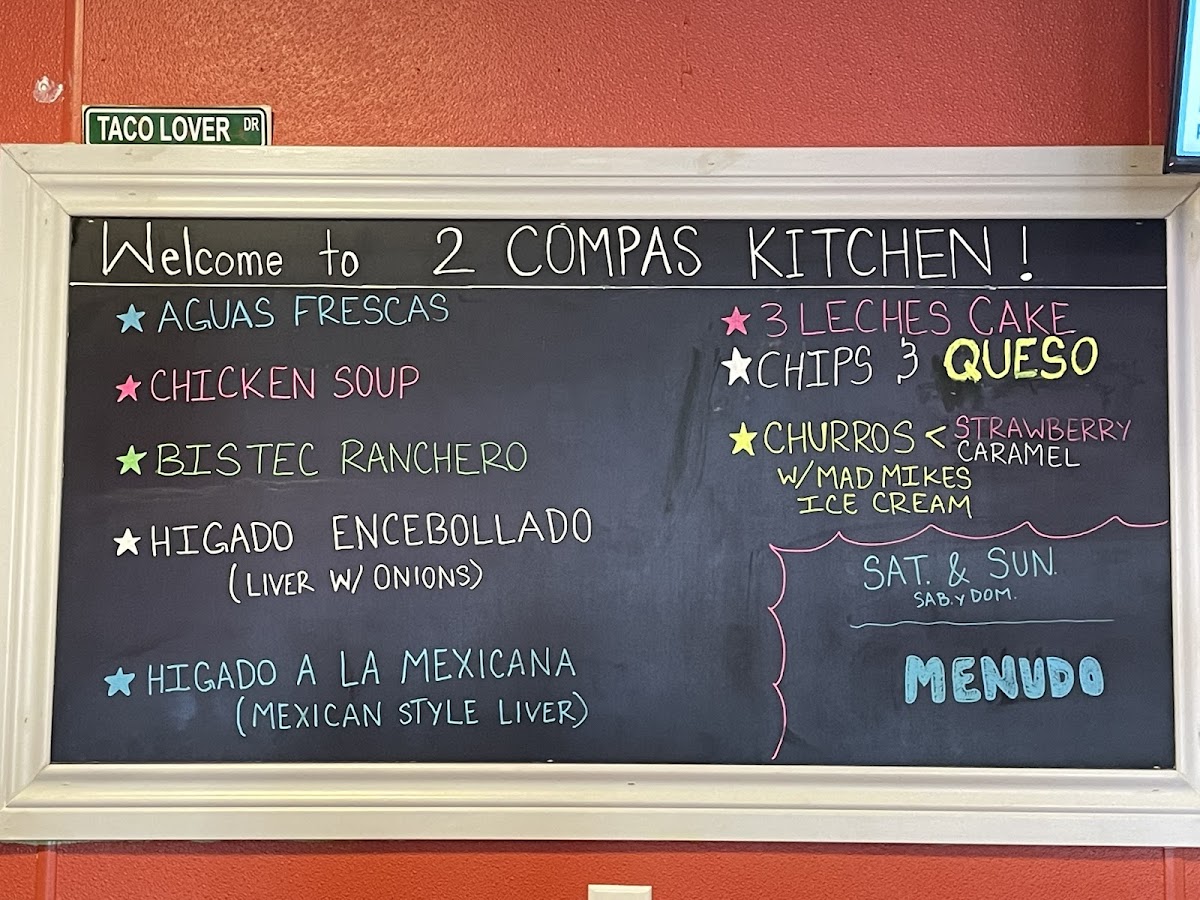 TACO LOVER DR
Welcome to 2 COMPAS KITCHEN!
AGUAS FRESCAS
CHICKEN SOUP
BISTEC RANCHERO
HIGADO ENCEBOLLADO
(LIVER W/ ONIONS)
HIGADO A LA MEXICANA
(MEXICAN STYLE LIVER)
3 LECHES CAKE
CHIPS & QUESO
CHURROS < STRAWBERRY
CARAMEL
W/ MAD MIKES
ICE CREAM
SAT. & SUN.
SAB. Y DOM.
MENUDO